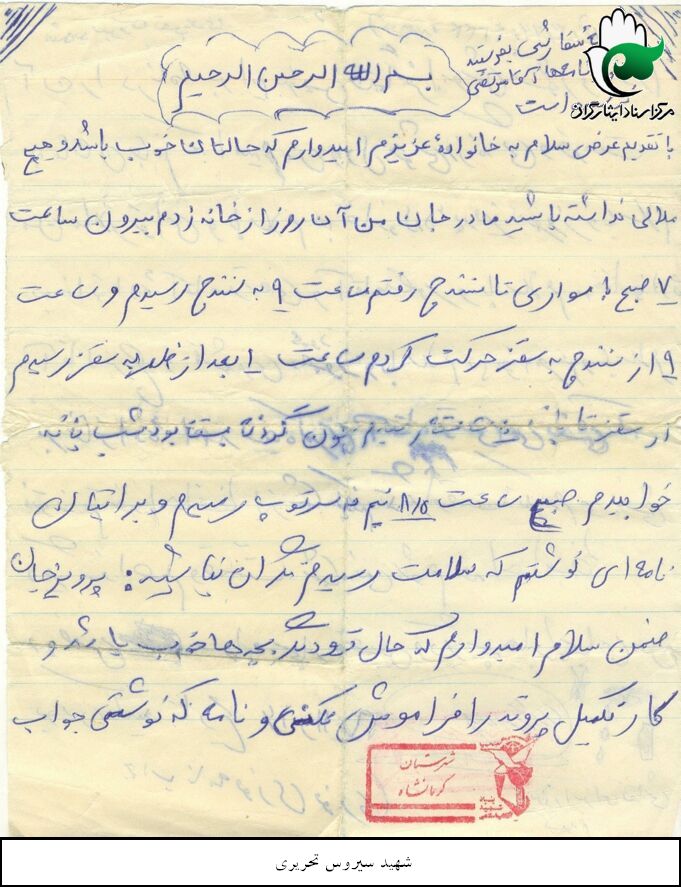 بسم الله الرحمن الرحیم
سفارشی بفرستید
نامه‌ها
است
مرکز اسناد ایثارگران
با تقدیم عرض سلام به خانوادهٔ عزیزم امیدوارم که حالتان خوب باشد و هیچ
ملالی نداشته باشید مادر جان من آن روز از خانه زدم بیرون ساعت
۷ صبح با سواری تا سنندج رفتم ساعت ۹ به سنندج رسیدم و ساعت
۹ از سنندج به سقز حرکت کردم ساعت ۱ بعد از ظهر به سقز رسیدم
از سقز تا چون گردنه بسته بود شب
خوابیدم صبح ساعت ۸/۵ نیم به سر توپ رسیدم و برایتان
نامه‌ای نوشتم که سلامت رسیدم نگران نباشید: پرویز جان
ضمن سلام امیدوارم که حال تو و دیگر بچه‌ها خوب باشد و
کار تکمیل پرونده را فراموش نکنی و نامه که نوشتی جواب
شهرستان
کرمانشاه
بنیاد
شهید
شهید سیروس تحریری